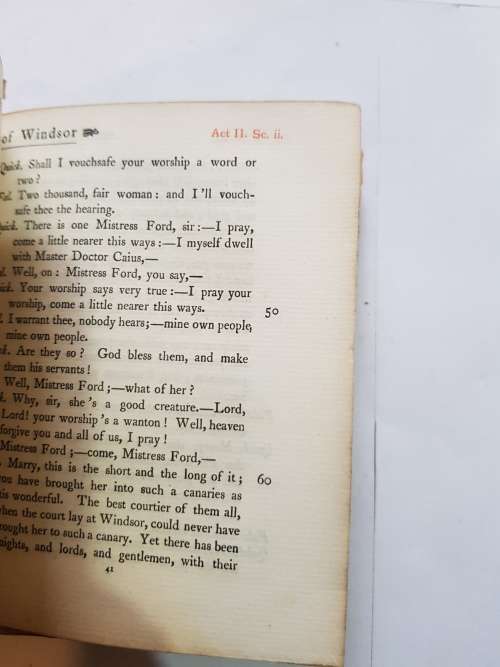 of Windsor Act II. Sc. ii.
Quick. Shall I vouchsafe your worship a word or
two?
Fal. Two thousand, fair woman: and I'll vouch-
safe thee the hearing.
Quick. There is one Mistress Ford, sir:—I pray,
come a little nearer this ways:—I myself dwell
with Master Doctor Caius,—
al. Well, on: Mistress Ford, you say,—
ick. Your worship says very true:—I pray your
worship, come a little nearer this ways. 50
l. I warrant thee, nobody hears;—mine own people,
mine own people.
ck. Are they so? God bless them, and make
them his servants!
Well, Mistress Ford;—what of her?
k. Why, sir, she's a good creature.—Lord,
Lord! your worship's a wanton! Well, heaven
forgive you and all of us, I pray!
Mistress Ford;—come, Mistress Ford,—
Marry, this is the short and the long of it; 60
you have brought her into such a canaries as
'tis wonderful. The best courtier of them all,
when the court lay at Windsor, could never have
rought her to such a canary. Yet there has been
nights, and lords, and gentlemen, with their
41